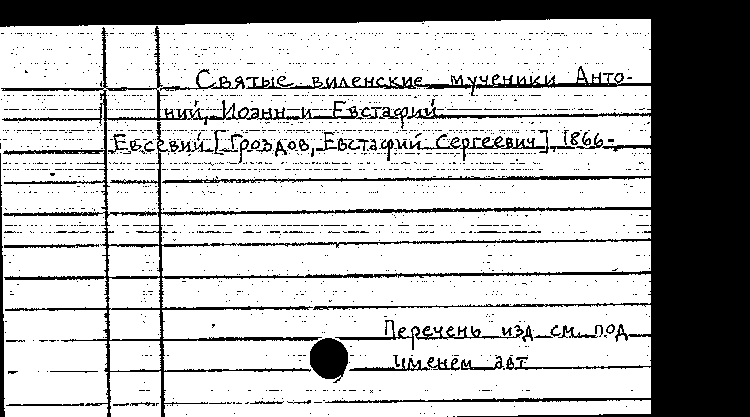 Святые виленские мученики Анто-
ний, Иоанн и Евстафий
Евсевий [Гроздов, Евстафий Сергеевич] 1866-
Перечень изд см. под
именем авт